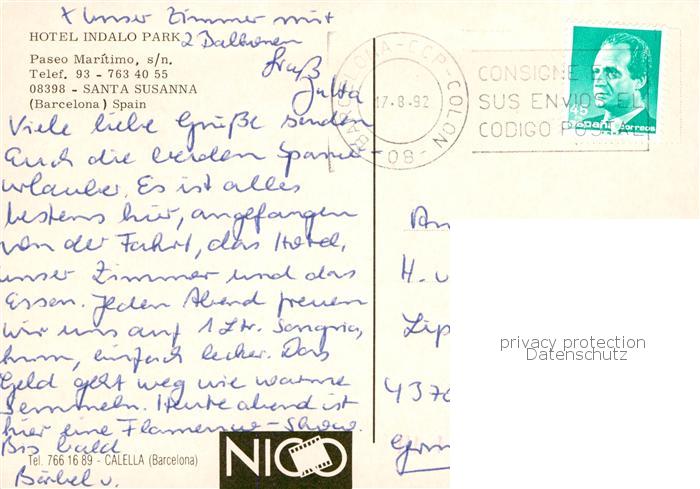 x Unser Zimmer mit
2 Balkonen
HOTEL INDALO PARK
Paseo Marítimo, s/n.
Telef. 93 - 763 40 55
08398 - SANTA SUSANNA
(Barcelona) Spain
Gruß
Jutta
Viele liebe Grüße senden
Euch die beiden Spanien-
urlauber. Es ist alles
bestens hier, angefangen
von der Fahrt, das Hotel,
unser Zimmer und das
Essen. Jeden Abend freuen
wir uns auf 1 Ltr. Sangria,
hmm, einfach lecker. Das
Geld geht weg wie warme
Semmeln. Heute abend ist
hier eine Flamenco-Show.
Bis bald
Bärbel u.
Tel. 766 16 89 - CALELLA (Barcelona)
NICO
BARCELONA-CCP-COLON
17-8-92
-08-
CONSIGNE
SUS ENVIOS EL
CODIGO POSTAL
45
España correos
An
H. u
Lip
4370
privacy protection
Datenschutz